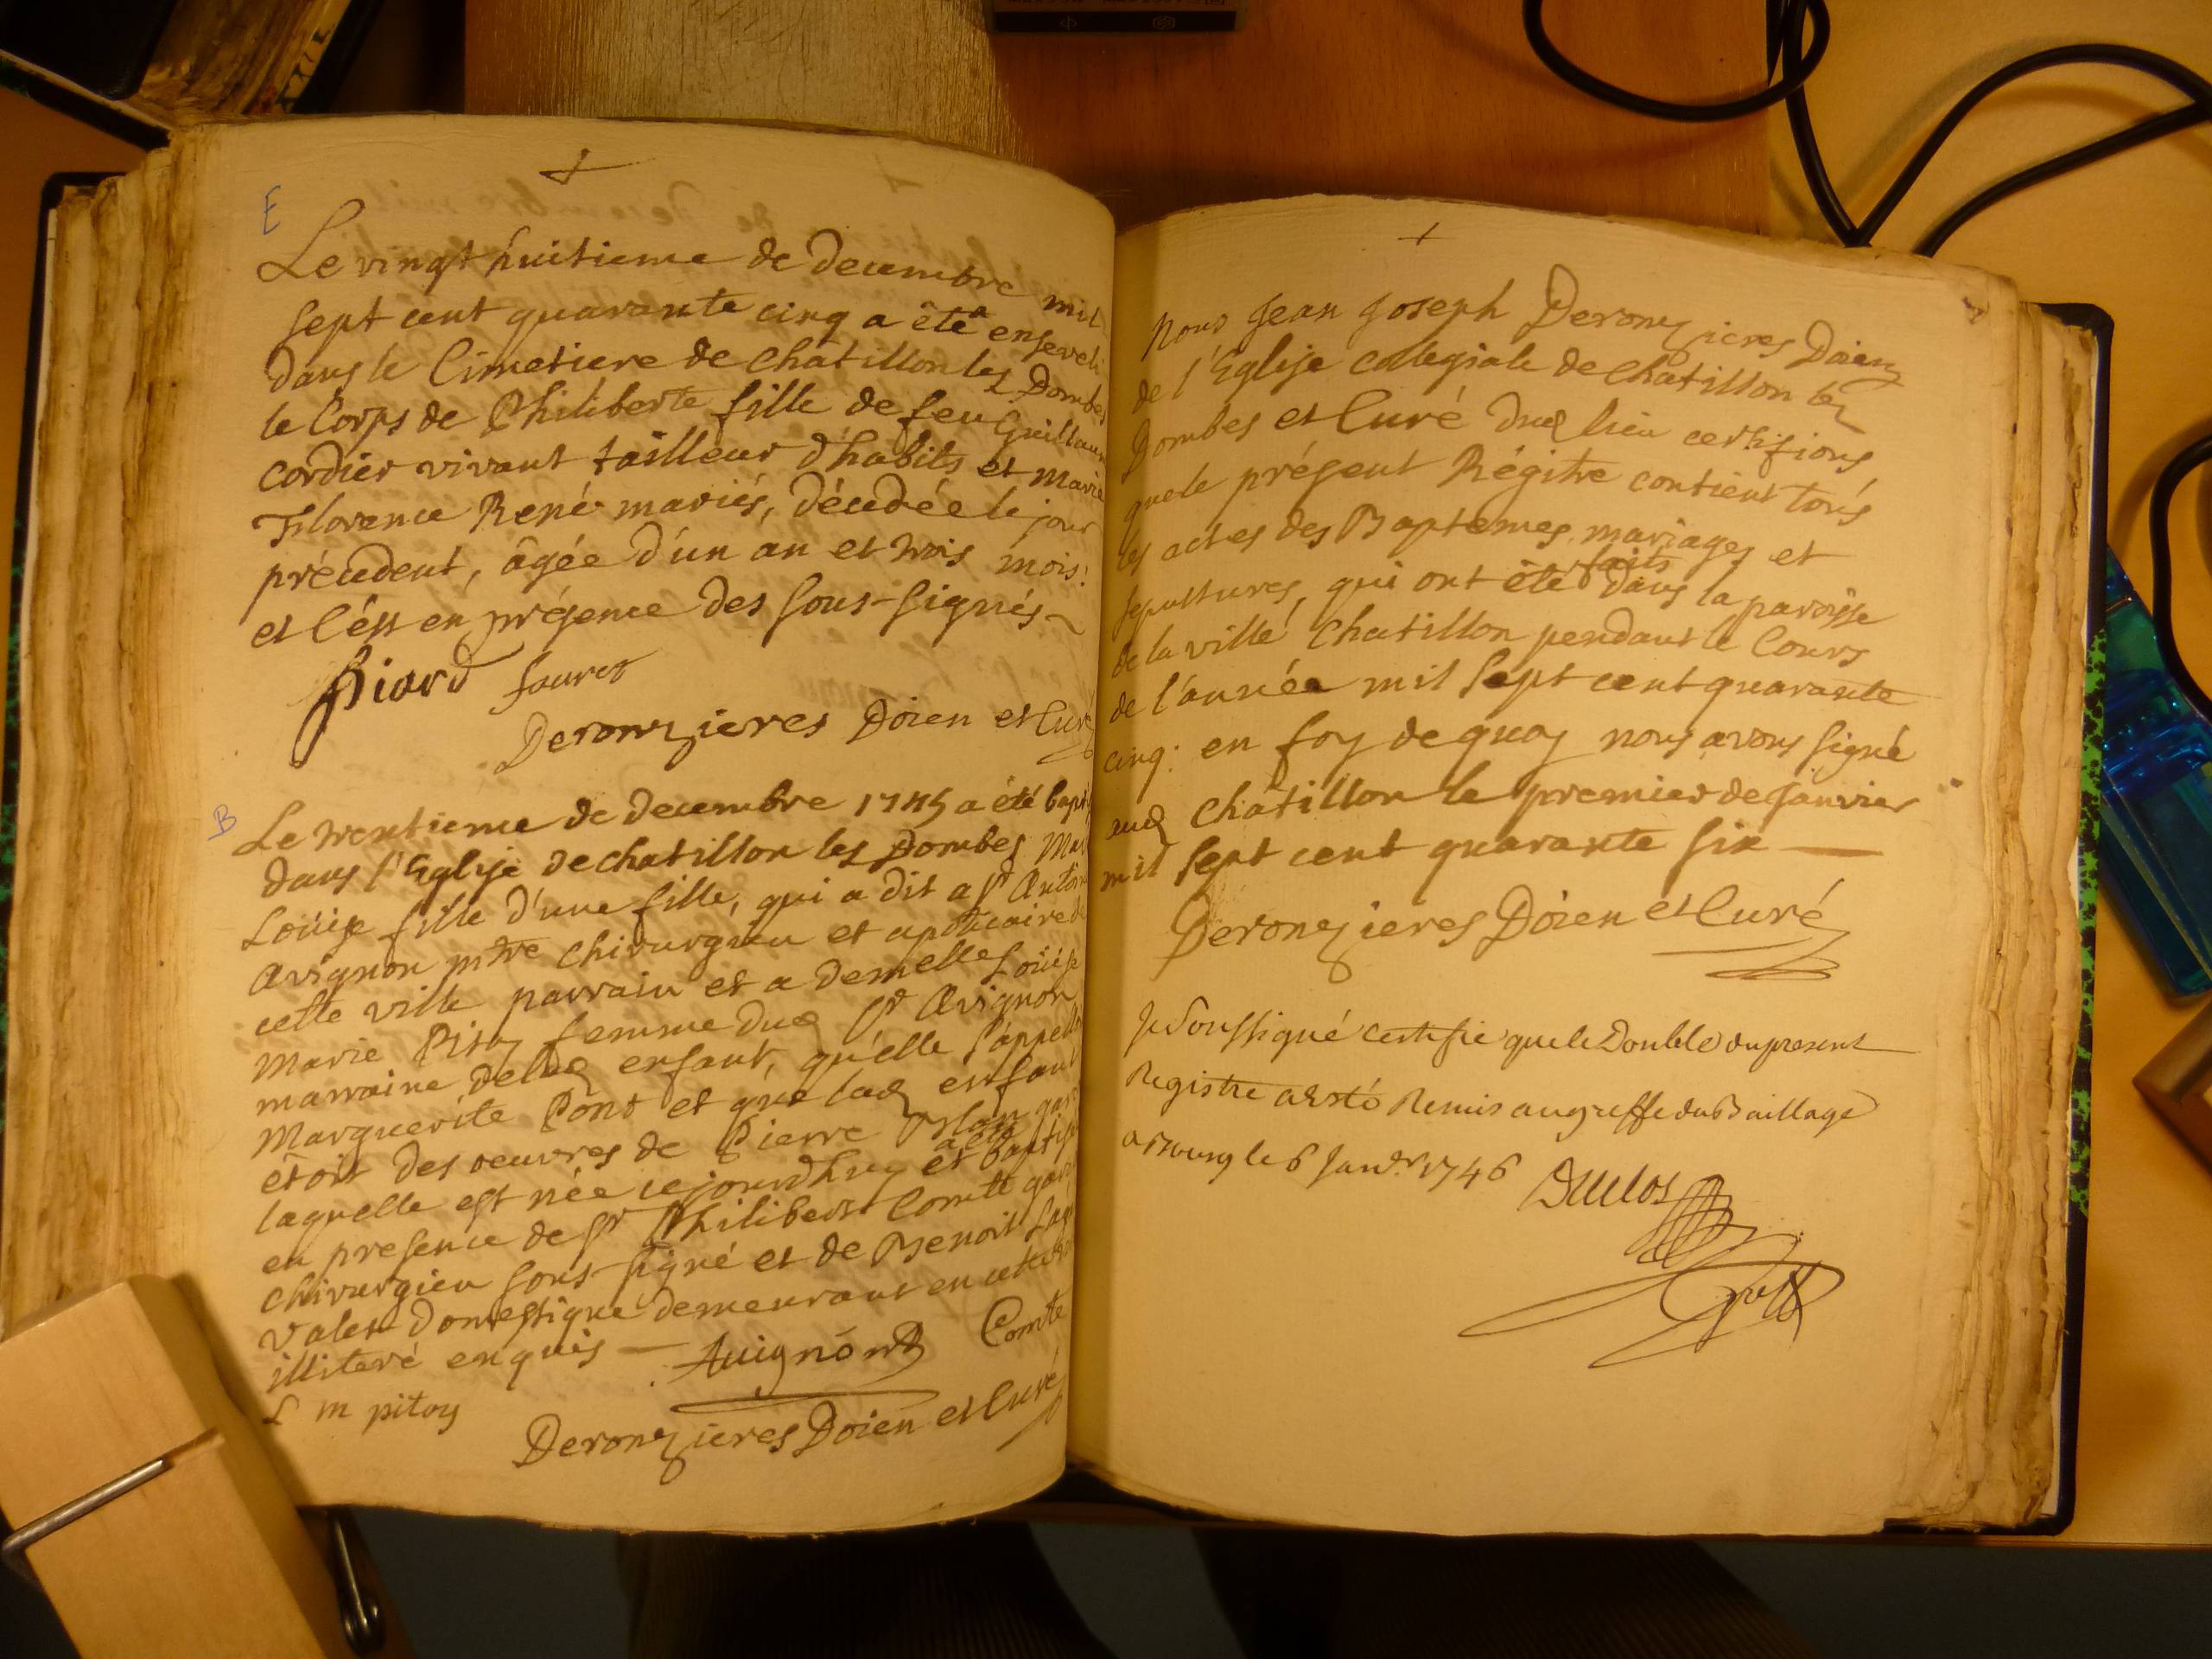 E
Le vingt huitieme de decembre mil
sept cent quarante cinq a êté enseveli
dans le Cimetiere de Châtillon les Dombes
le Corps de Philiberte fille de feu Guillaum
cordier vivant tailleur d'habits et Marie
Florence René mariés, décedée le jour
précedent, âgée d'un an et trois mois:
et c'ést en présence des sous-signés
Biard fauret
Deronzieres Doien et Curé
B
Le trentieme de decembre 1745 a été bapt
dans l'Eglise de chatillon les Dombes Ma
Loüise fille d'une fille, qui a dit a Sr Antoin
Avignon mtre chirurgien et apoticaire de
cette ville parrain et a demelles Loüise
Marie Pitoy femme dud Sr Avignon
marraine de lad enfant, qu'elle s'appell
Marguerite Pont et que lad enfant
étoit des oeuvres de Pierre
laquelle est née cejourdhuy et a été baptisé
en presence de Sr Philibert Comte gar
chirurgien sous-signé et de Benoit
valet domestique demeurant en cette
illiteré enquis
Avignon Comte
L m pitoy
Deronzieres Doien et Curé
Nous Jean Joseph Deronzieres Doien
de l'Eglise collegiale de chatillon les
Dombes et Curé dud lieu certifions
que le présent Régitre contient toûs
les actes des Baptemes, mariages et
sepultures, qui ont été faits dans la paroisse
de la ville Chatillon pendant le Cours
de l'année mil sept cent quarante
cinq: en foy de quoy nous avons signé
aud Châtillon le premier de Janvier
mil sept cent quarante six
Deronzieres Doien et Curé
Je Soussigné certifie que le Double du present
Registre a esté Remis au greffe du Baillage
a Bourg le 6 Janvr 1746 Duclos
Greff